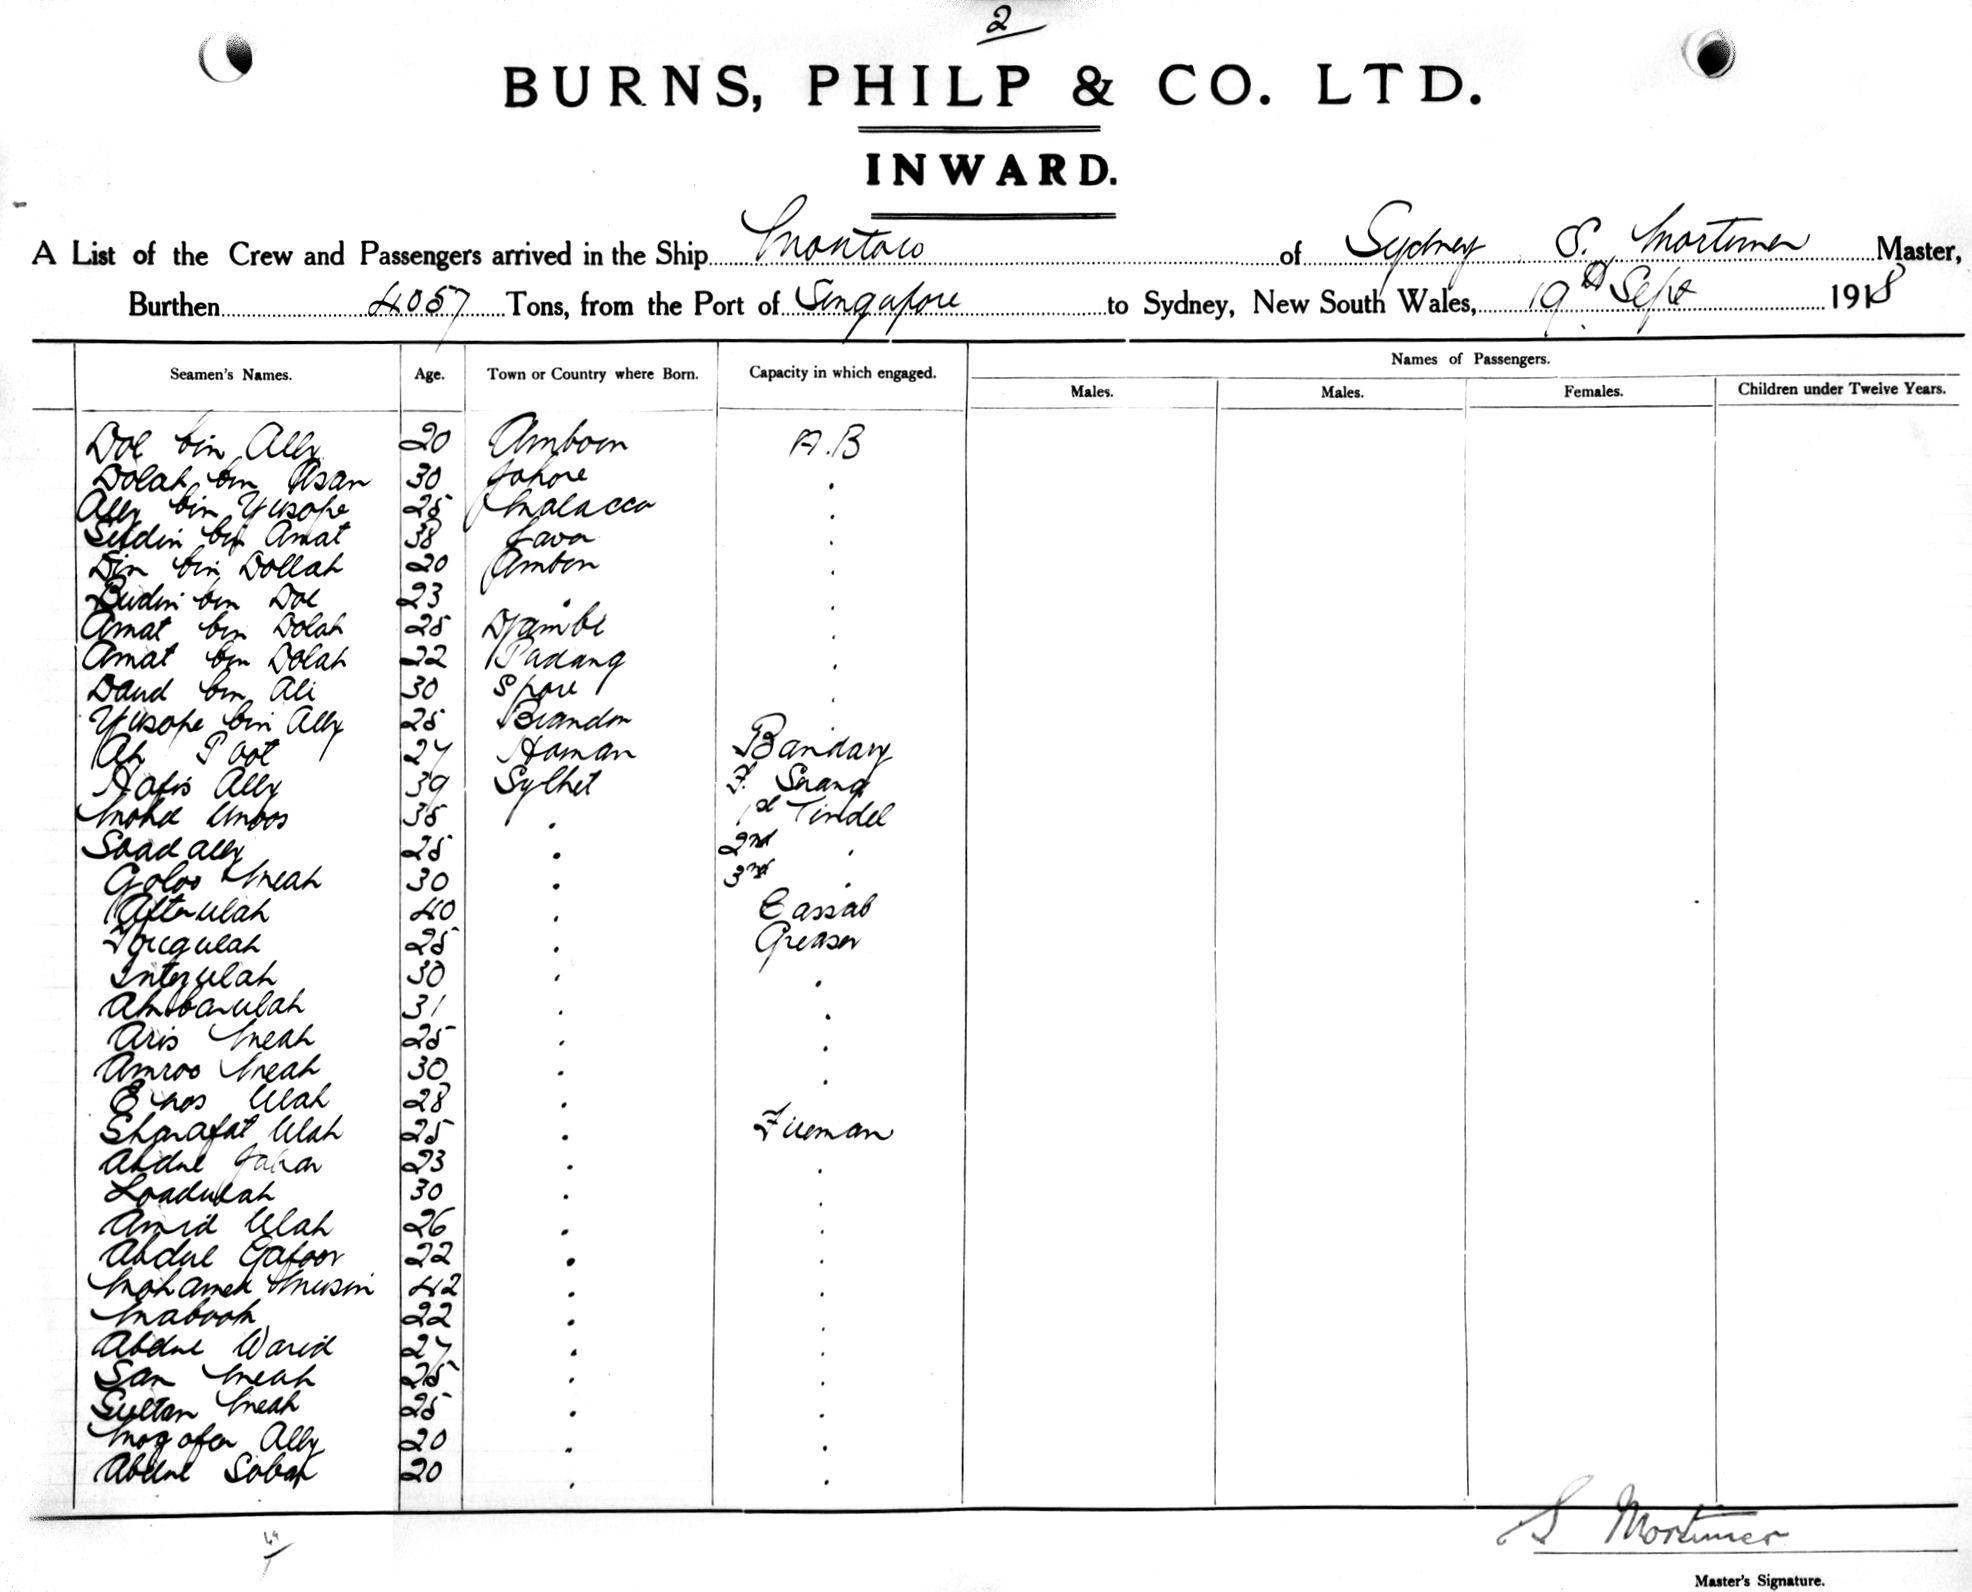 2
BURNS, PHILP & CO. LTD.
INWARD.
A List of the Crew and Passengers arrived in the Ship Montoro of Sydney S. Mortimer Master,
Burthen 4057 Tons, from the Port of Singapore to Sydney, New South Wales, 19th Sept 1918
Names of Passengers.
Seamen's Names. Age. Town or Country where Born. Capacity in which engaged. Males. Males. Females. Children under Twelve Years.
Dol bin Ally 20 Amboin A.B
Dolah bin Asan 30 Johore "
Ally bin Yusope 25 Malacca "
Sudin bin Amat 38 Java "
Din bin Dollah 20 Ambon "
Budin bin Dol 23 " "
Amat bin Dolah 25 Djambi "
Amat bin Dolah 22 Padang "
Daud bin Ali 30 Spore "
Yusope bin Ally 25 "
Ah Poot 27 Hainan Bandary
Hafis Ally 39 Sylhet Serang
Mohd Unoos 35 " 1st Tindel
Soad Ally 25 " 2nd "
Goloo Meah 30 " 3rd "
Aftarulah 40 " Cassab
25 " Greaser
Interulah 30 " "
Akbarulah 31 " "
Aris Meah 25 " "
Amroo Meah 30 " "
Enos Ulah 28 "
Sharafat Ulah 25 " Fireman
Abdul Jabar 23 " "
Loadulah 30 " "
Amid Ulah 26 " "
Abdul Gafoor 22 " "
Mohamed Musin 42 " "
Mabook 22 " "
Abdul Warid 27 " "
San Meah 25 " "
Sultan Meah 25 " "
Mozafer Ally 20 " "
Abdul Sobar 20 " "
S Mortimer
Master's Signature.